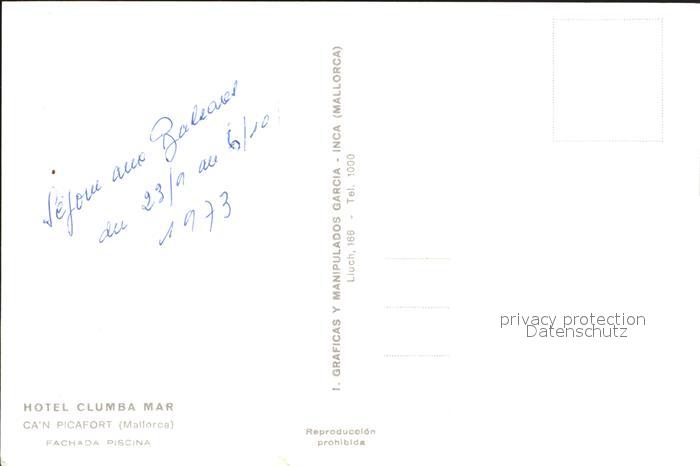 Séjour aux Baléares
du 23/9 au 6/10
1973
HOTEL CLUMBA MAR
CA'N PICAFORT (Mallorca)
FACHADA PISCINA
I. GRAFICAS Y MANIPULADOS GARCIA - INCA (MALLORCA)
Lluch, 168 - Tel. 1000
Reproducción
prohibida
privacy protection
Datenschutz